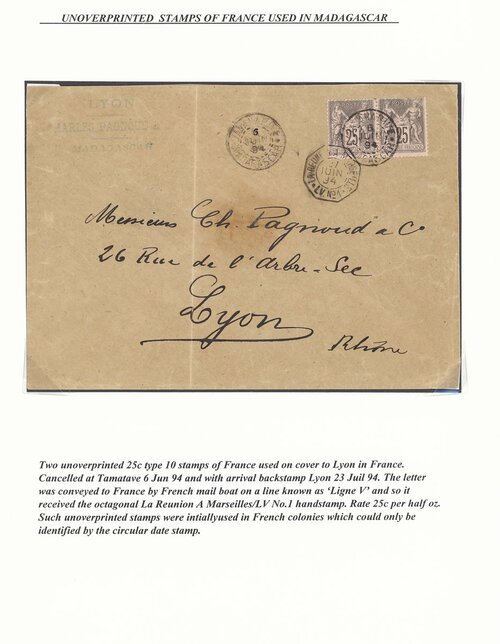 UNOVERPRINTED STAMPS OF FRANCE USED IN MADAGASCAR
LYON
MADAGASCAR
6
94
25
25
6
94
JUIN
94
Messieurs Ch. Pagnoud & Co
26 Rue de l'Arbre-Sec
Lyon
Rhône
Two unoverprinted 25c type 10 stamps of France used on cover to Lyon in France.
Cancelled at Tamatave 6 Jun 94 and with arrival backstamp Lyon 23 Juil 94. The letter
was conveyed to France by French mail boat on a line known as 'Ligne V' and so it
received the octagonal La Reunion A Marseilles/LV No.1 handstamp. Rate 25c per half oz.
Such unoverprinted stamps were intiallyused in French colonies which could only be
identified by the circular date stamp.